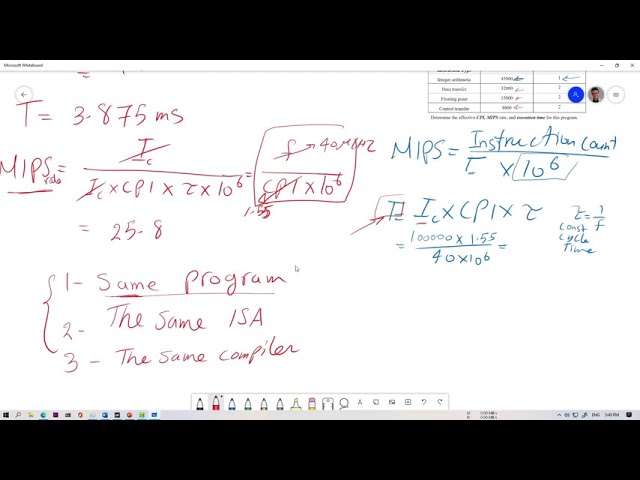 Microsoft Whiteboard
Integer arithmetic 45000 1
Data transfer 32000 2
Floating point 15000 2
Control transfer 8000 2
Determine the effective CPI, MIPS rate, and execution time for this program.
T = 3.875 ms
MIPS rate = Ic / Ic × CPI × τ × 10^6 = f → 40 MHZ / CPI × 10^6
1.55
= 25.8
MIPS = Instruction Count / T × 10^6
T = Ic × CPI × τ
= 100000 × 1.55 / 40×10^6 =
τ = 1/f
Const
cycle
Time
1- Same program
2- The same ISA
3- The same compiler
ENG 5:49 PM